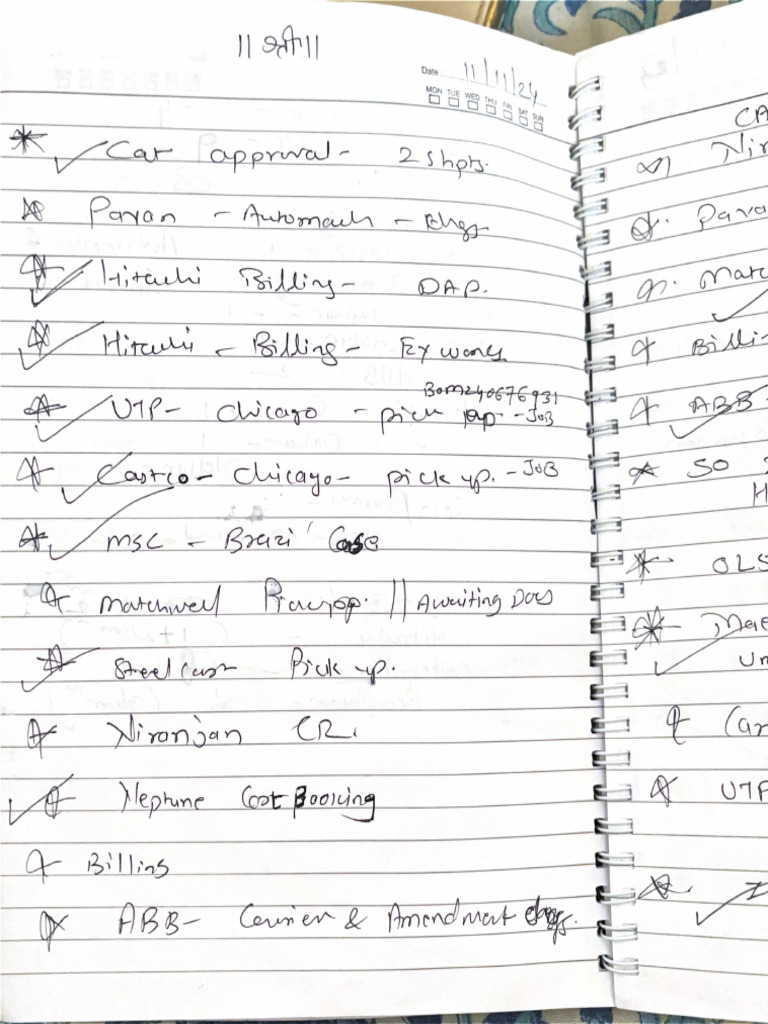 || श्री ||
Date 11/11/24
MON TUE WED THU FRI SAT SUN
Cat approval - 2 shpts.
Pavan - Automach - chgs
Hitachi Billing - DAP.
Hitachi - Billing - Ex works
BOM240676931
UTP - Chicago - pick up. - JOB
Castco - Chicago - pick up. - JOB
MSC - Brazi Case
Matchwell Pickup. || Awaiting Docs
Steel Cast Pick up.
Niranjan CR.
Neptune Cost Booking
Billing
ABB - Courier & Amendment chgs.
CA
Nir
Pava
Matc
Billi
ABB
SO
H
OLS
Un
Car
UTP